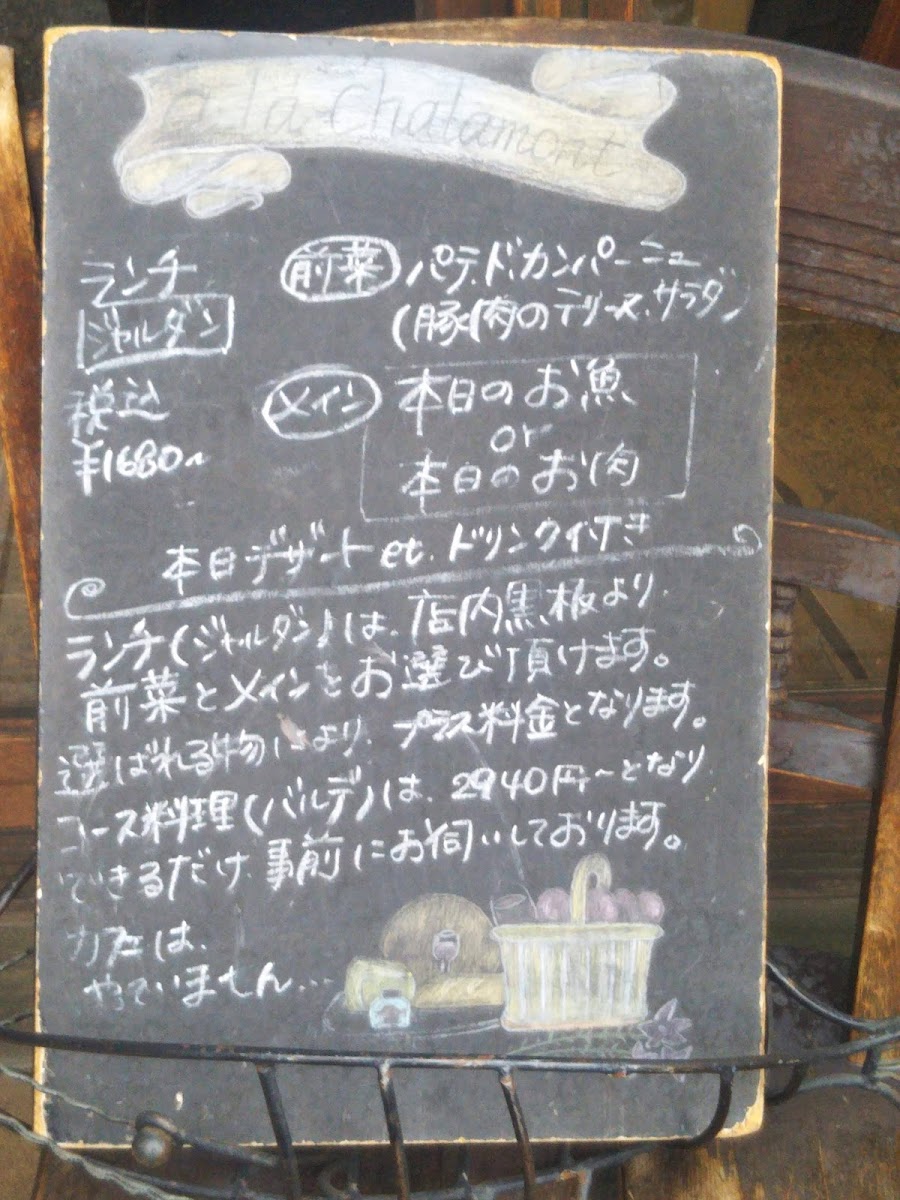 a la Chalamont
ランチ
ジャルダン
税込
¥1680~
前菜 パテ.ド.カンパーニュ
(豚肉のテリーヌ.サラダ)
メイン 本日のお魚
or
本日のお肉
本日デザート et. ドリンク付き
ランチ(ジャルダン)は、店内黒板より、
前菜とメインをお選び頂けます。
選ばれる物により、プラス料金となります。
コース料理(バルデ)は、2940円~となり
できるだけ、事前にお伺いしております。
カフェは、
やっていません…